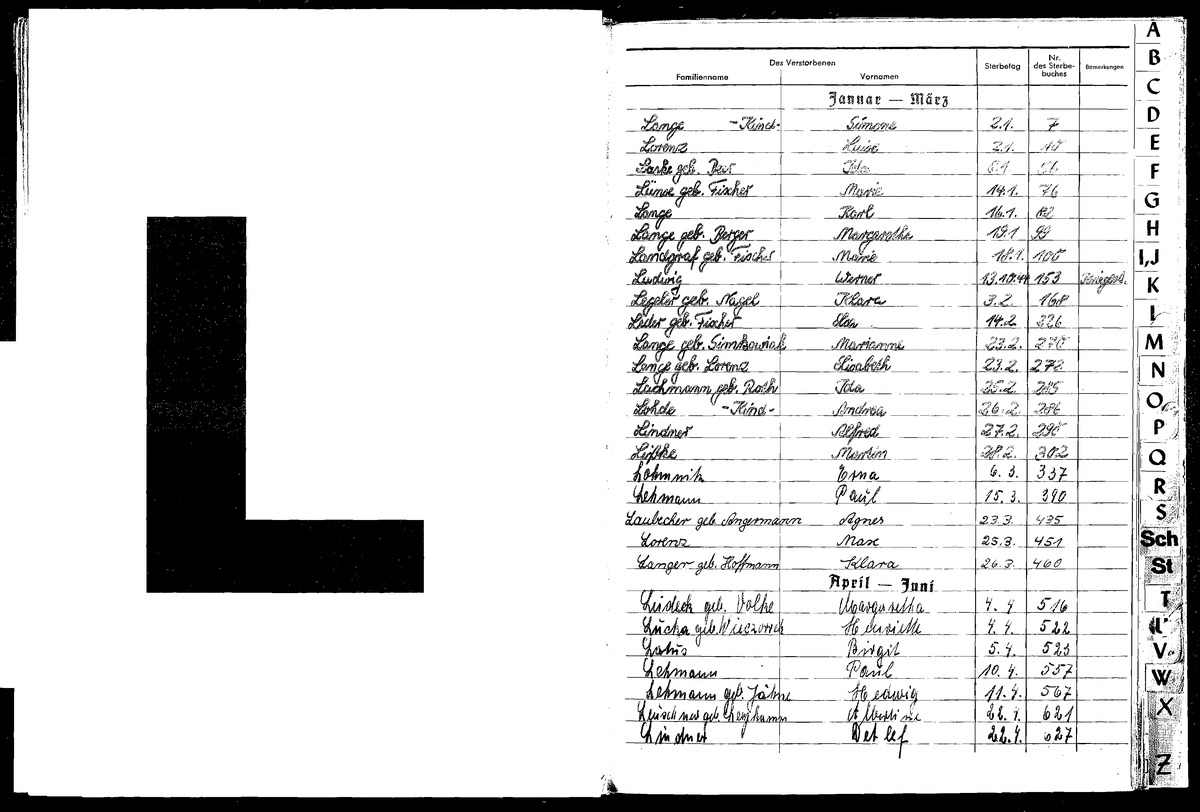 L
Des Verstorbenen
Familienname Vornamen Sterbetag Nr. des Sterbebuches Bemerkungen
Januar — März
Lange -Kind- Simone 2.1. 7
Lorenz Luise 2.1. 10
geb. Ida 6.1. 56
geb. Fischer Marie 14.1. 76
Lange Karl 16.1. 82
Lange geb. Berger Margarethe 19.1 99
Landgraf geb. Fischer Marie 18.1. 100
Ludwig Werner 13.10.44 153
Legeler geb. Nagel Klara 3.2. 168
Leder geb. Fischer 14.2. 226
Lange geb. Simkowiak Marianne 23.2. 270
Lange geb. Lorenz Elisabeth 23.2. 272
Lachmann geb. Roth Ida 25.2. 285
Lohde -Kind- Andrea 26.2. 286
Lindner Alfred 27.2. 290
Martin 28.2. 302
Erna 6.3. 337
Lehmann Paul 15.3. 390
Laubecher geb. Angermann Agnes 23.3. 435
Lorenz Max 25.3. 451
Langer geb. Hoffmann Klara 26.3. 460
April — Juni
geb. Volke Margaretha 4.4 516
Lucka geb. Wieczorrek Henriette 4.4. 522
Latus Birgit 5.4. 523
Lehmann Paul 10.4. 557
Lehmann geb. Jähne Hedwig 11.4. 567
geb. Albertine 22.4. 621
Lindner Detlef 22.4. 627
A
B
C
D
E
F
G
H
I,J
K
L
M
N
O
P
Q
R
S
Sch
St
T
U
V
W
X
Z